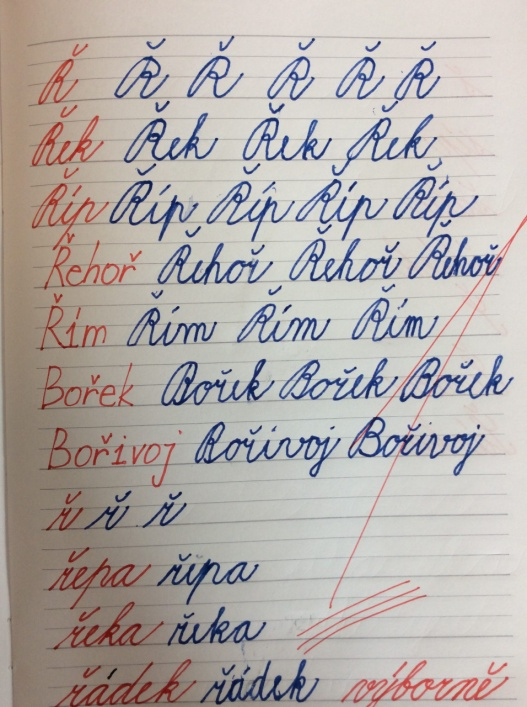 Ř Ř Ř Ř Ř Ř
Řek Řek Řek Řek
Říp Říp Říp Říp Říp
Řehoř Řehoř Řehoř Řehoř
Řím Řím Řím Řím
Bořek Bořek Bořek Bořek
Bořivoj Bořivoj Bořivoj
ř ř ř
řepa řepa
řeka řeka
řádek řádek výborně